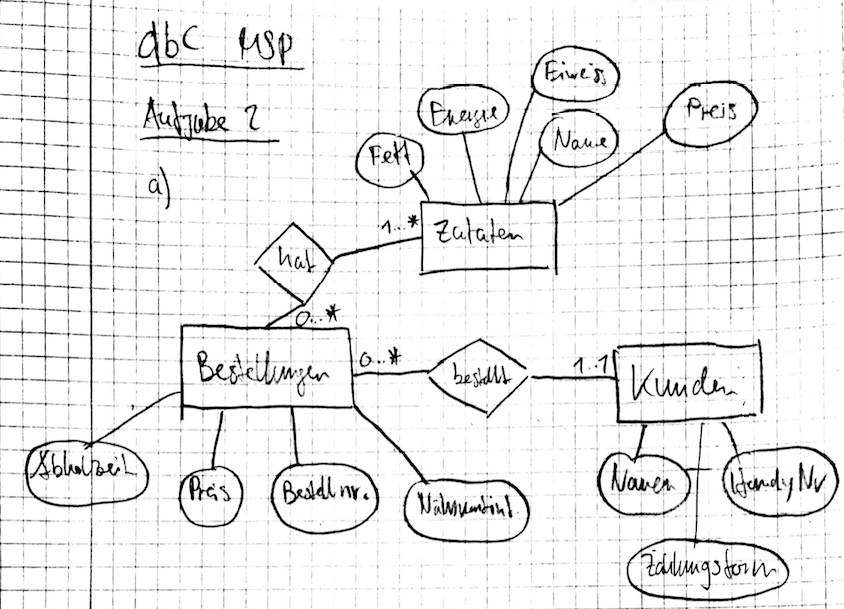 dbC MSP
Aufgabe 2
a)
Eiweiss
Energie
Preis
Name
Fett
1..*
Zutaten
hat
0..*
Bestellungen
0..*
bestellt
1..1
Kunden
Abholzeit
Preis
Bestellnr.
Namen
HandyNr
Zahlungsform